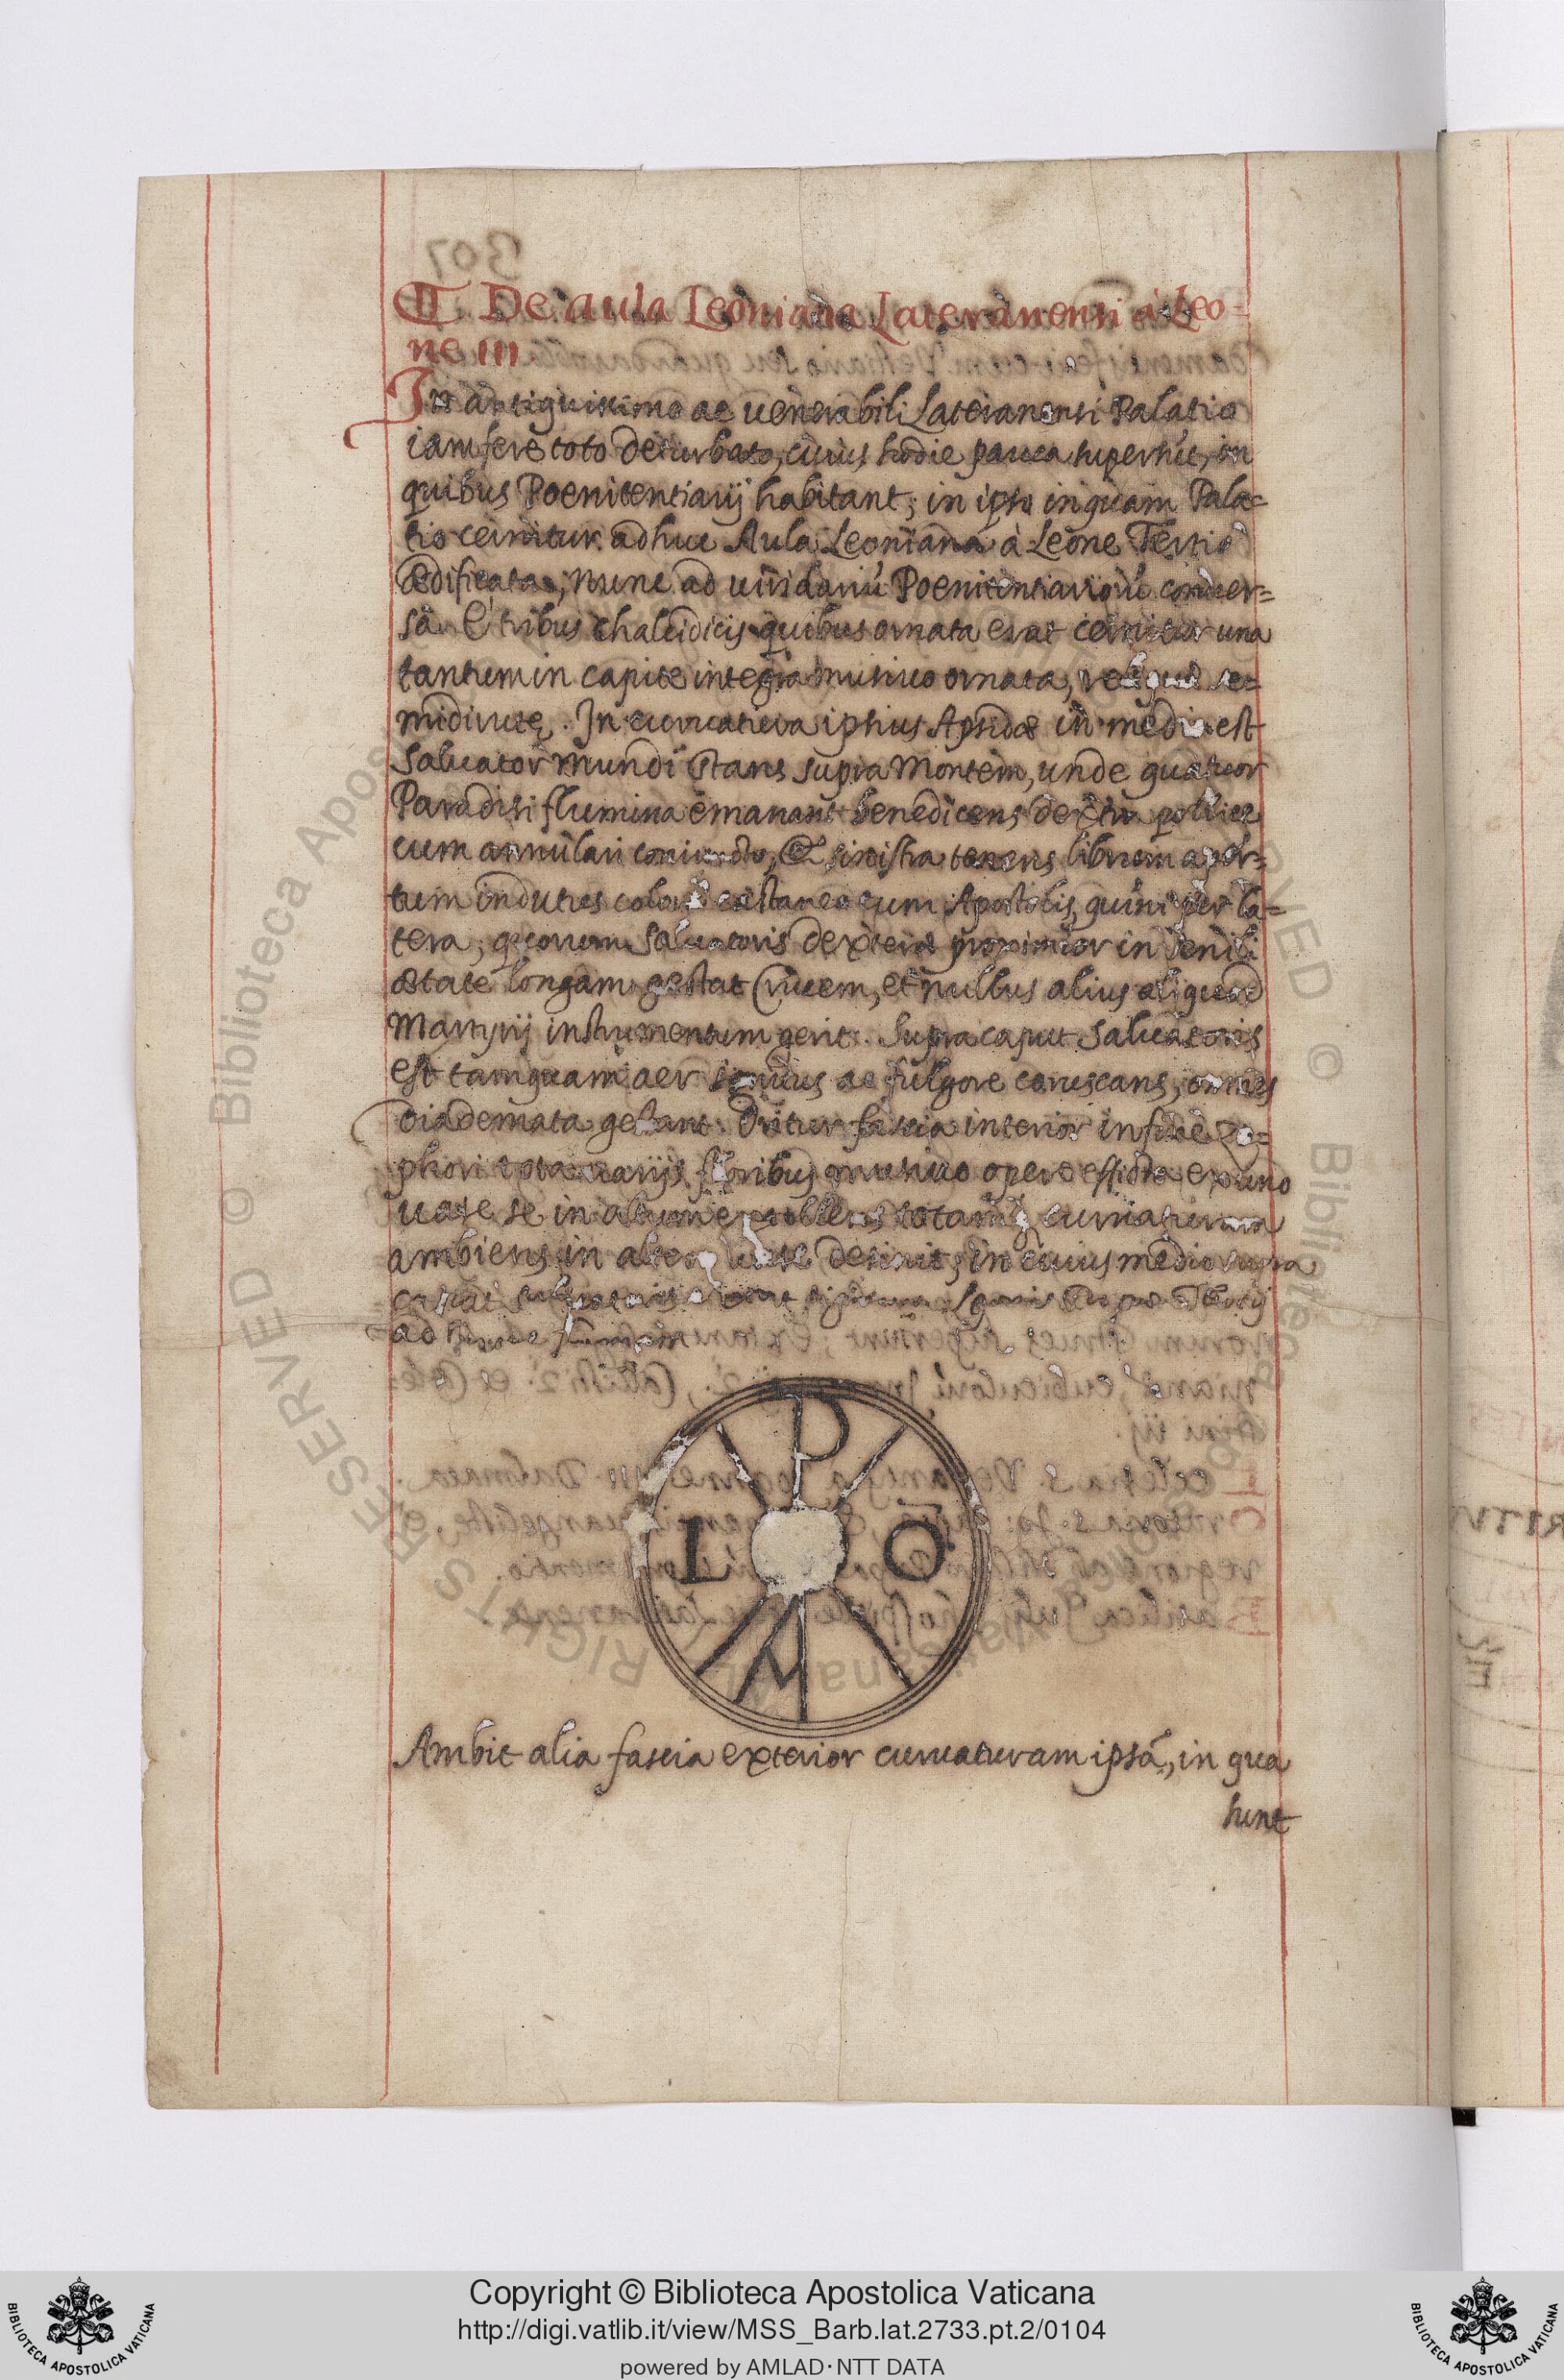 ₵ De Aula Leoniana Lateranensi à Leo=
ne III
In antiquissimo ac uenerabili Lateranensi Palatio
iam fere toto deturbato, cuius hodie pauca supersūt, in
quibus Poenitentiarij habitant; in ipso inquam Pala=
tio cernitur adhuc Aula Leoniana à Leone Tertio
ædificata, nunc ad uiridariū Poenitentiariorū conuer=
sā. E tribus chalcidicis quibus ornata erat cernitur una
tantum in capite integra musiuo ornata, reliquæ se=
midirutę. In curuatura ipsius Apsidæ in medio est
Saluator Mundi stans supra Montem, unde quatuor
Paradisi flumina emanant benedicens dextra pollice
cum annulari coniuncto, & sinistra tenens librum aper=
tum indutus colore castaneo cum Apostolis, quini per la=
tera, quorum Saluatoris dexteræ proximior in senili
ætate longam gestat Crucem, et nullus alius aliquod
Martyrij instrumentum gerit. Supra caput Saluatoris
est tamquam aer igneus ac fulgore coruscans, omnes
diademata gestant. Oritur fascia interior in fine Zo=
phori tota uarijs floribus musiuo opere efficta ex uno
uase se in altum extollens totamq̃ curuaturam
ambiens in altero uase desinit, in cuius medio supra
caput Saluatoris Leonis Papæ Tertij
ad hanc formam
P
L O
A
Ambit alia fascia exterior curuaturam ipsā, in qua
sunt
© Biblioteca Apostolica Vaticana
RIGHTS RESERVED
Copyright © Biblioteca Apostolica Vaticana
http://digi.vatlib.it/view/MSS_Barb.lat.2733.pt.2/0104
powered by AMLAD·NTT DATA
BIBLIOTECA APOSTOLICA VATICANA
BIBLIOTECA APOSTOLICA VATICANA